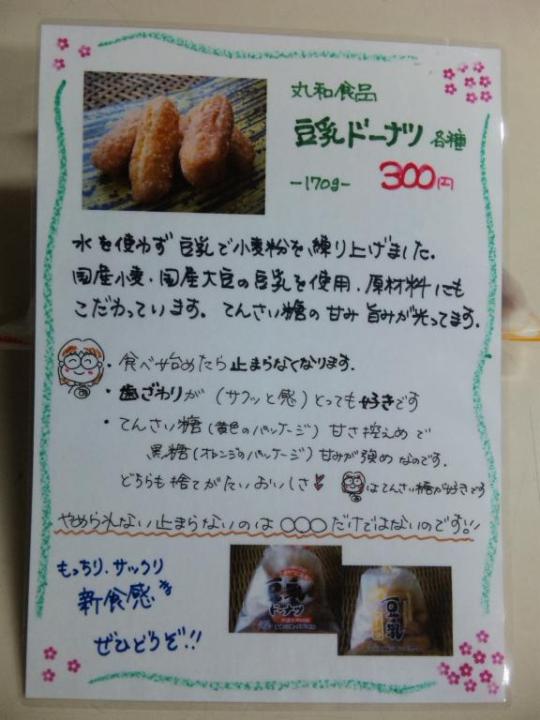 丸和食品
豆乳ドーナツ 各種
-170g- 300円
水を使わず豆乳で小麦粉を練り上げました.
国産小麦・国産大豆の豆乳を使用・原材料にも
こだわっています。てんさい糖の甘み旨みが光ってます。
・食べ始めたら止まらなくなります.
・歯ざわりが(サクッと感)とっても好きです
・てんさい糖(黄色のパッケージ)甘さ控えめで
黒糖(オレンジのパッケージ)甘みが強めなのです.
どちらも捨てがたいおいしさ
はてんさい糖が好きです
やめられない止まらないのは〇〇〇だけではないのです!!
もっちり、サックリ
新食感
ぜひどうぞ!!
豆乳
ドーナツ
豆乳